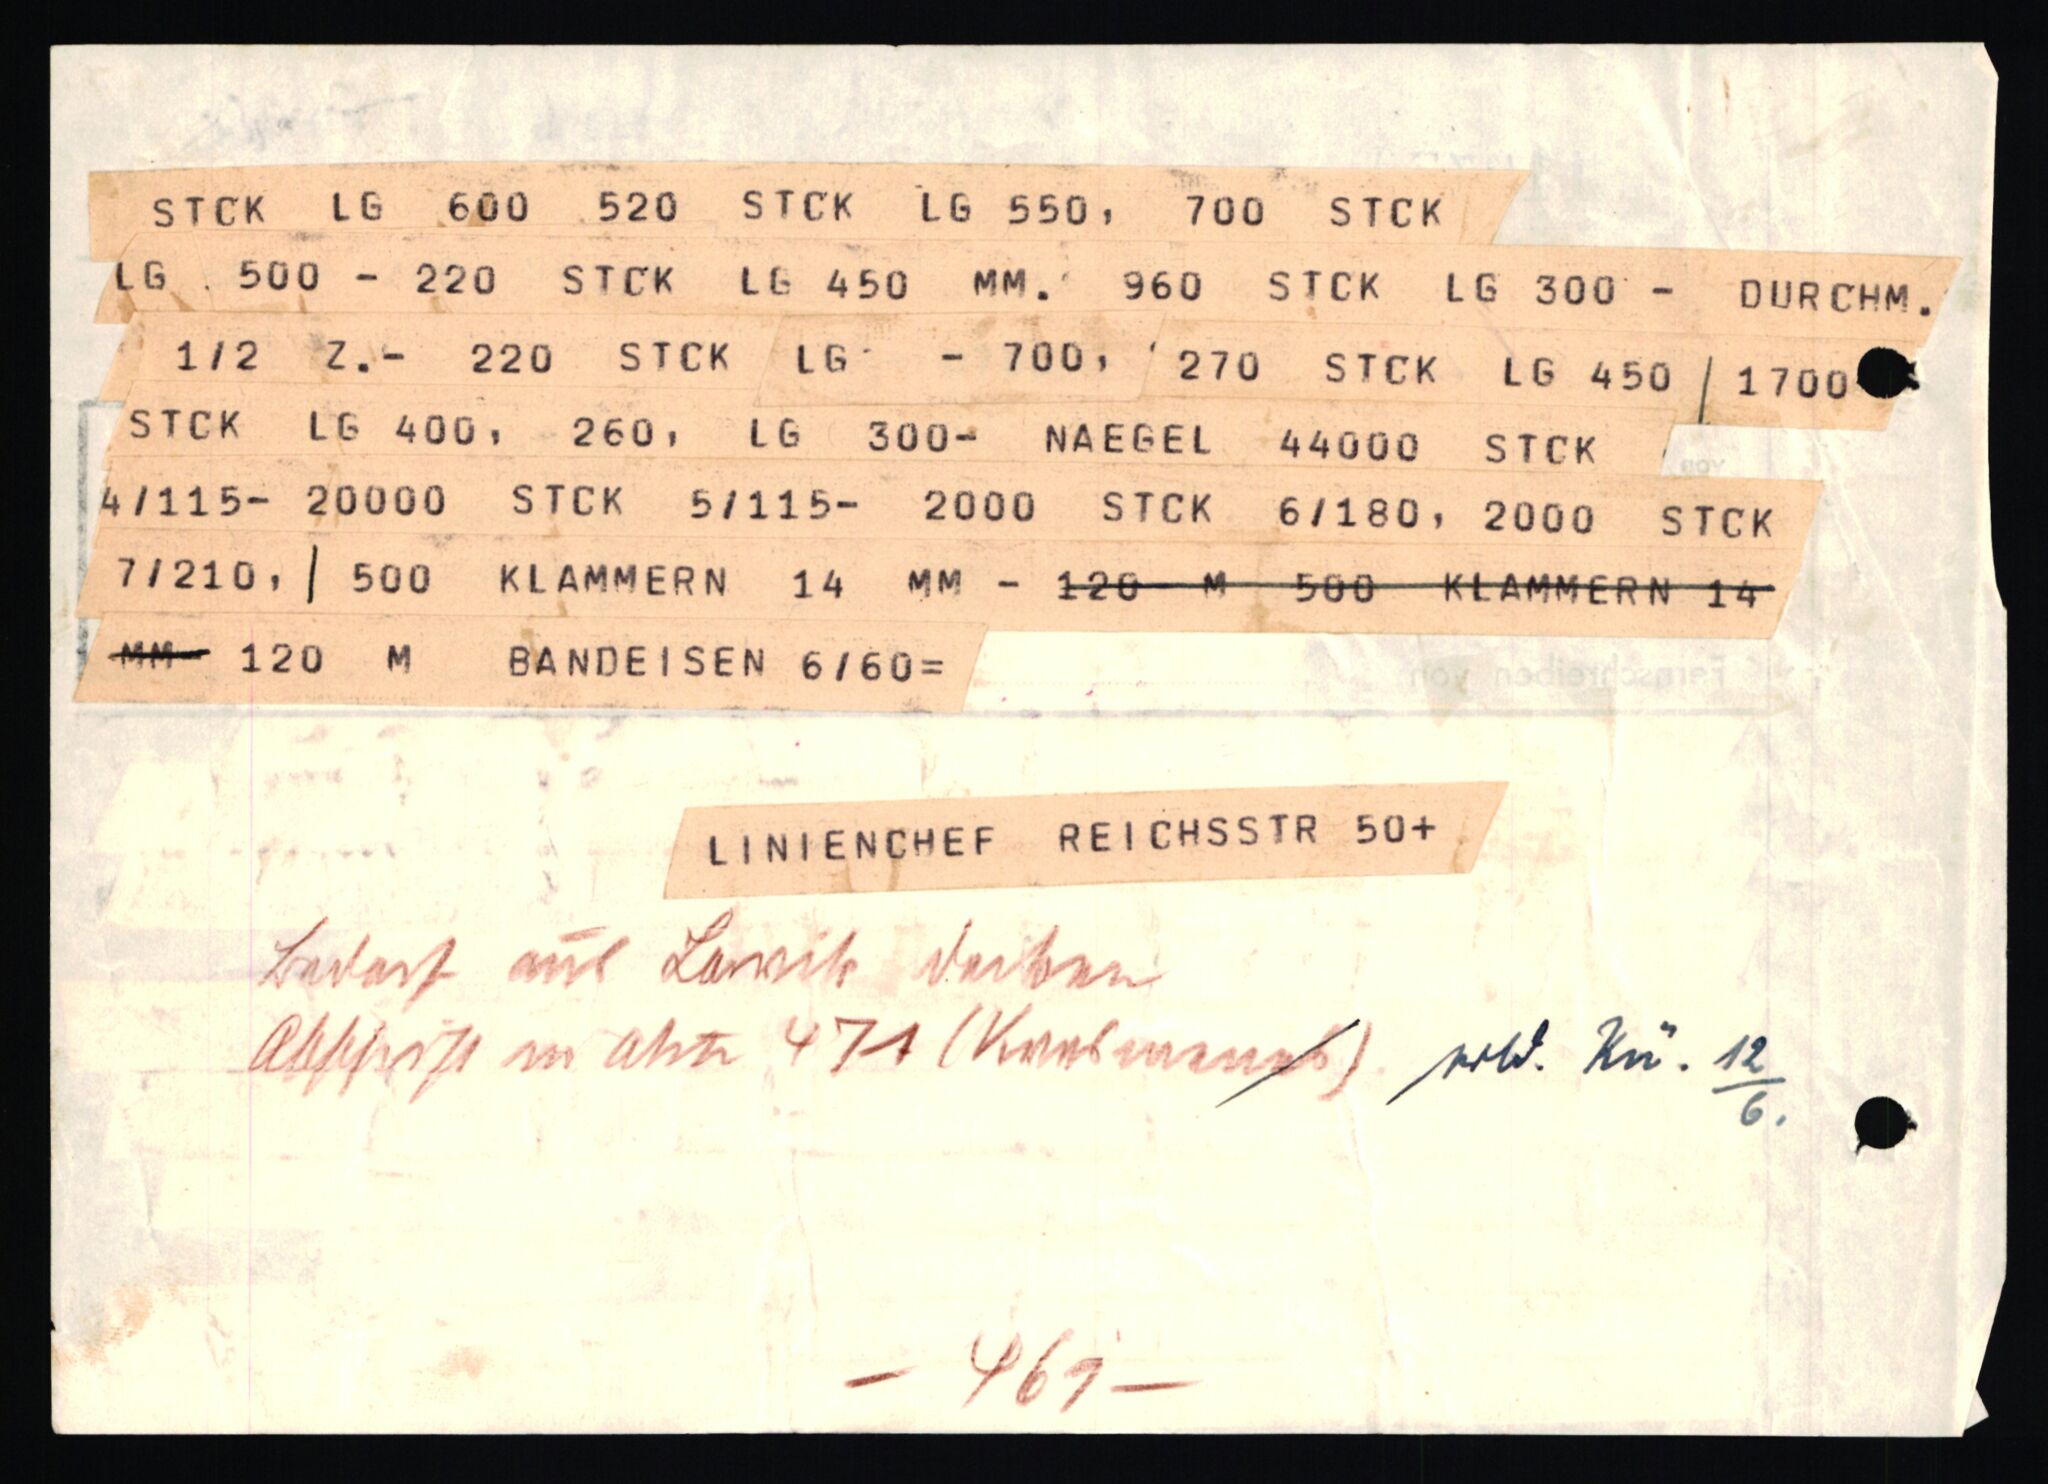 STCK LG 600 520 STCK LG 550, 700 STCK
LG . 500 - 220 STCK LG 450 MM. 960 STCK LG 300 - DURCHM.
1/2 Z.- 220 STCK LG - 700, 270 STCK LG 450 / 1700
STCK LG 400, 260, LG 300- NAEGEL 44000 STCK
4/115- 20000 STCK 5/115- 2000 STCK 6/180, 2000 STCK
7/210, / 500 KLAMMERN 14 MM - 120 M 500 KLAMMERN 14
MM- 120 M BANDEISEN 6/60=
Fernschreiben von
LINIENCHEF REICHSSTR 50+
Bedarf aus Larvik decken
Abschrift in Akte 471 erld. Kü. 12/6.
- 461 -